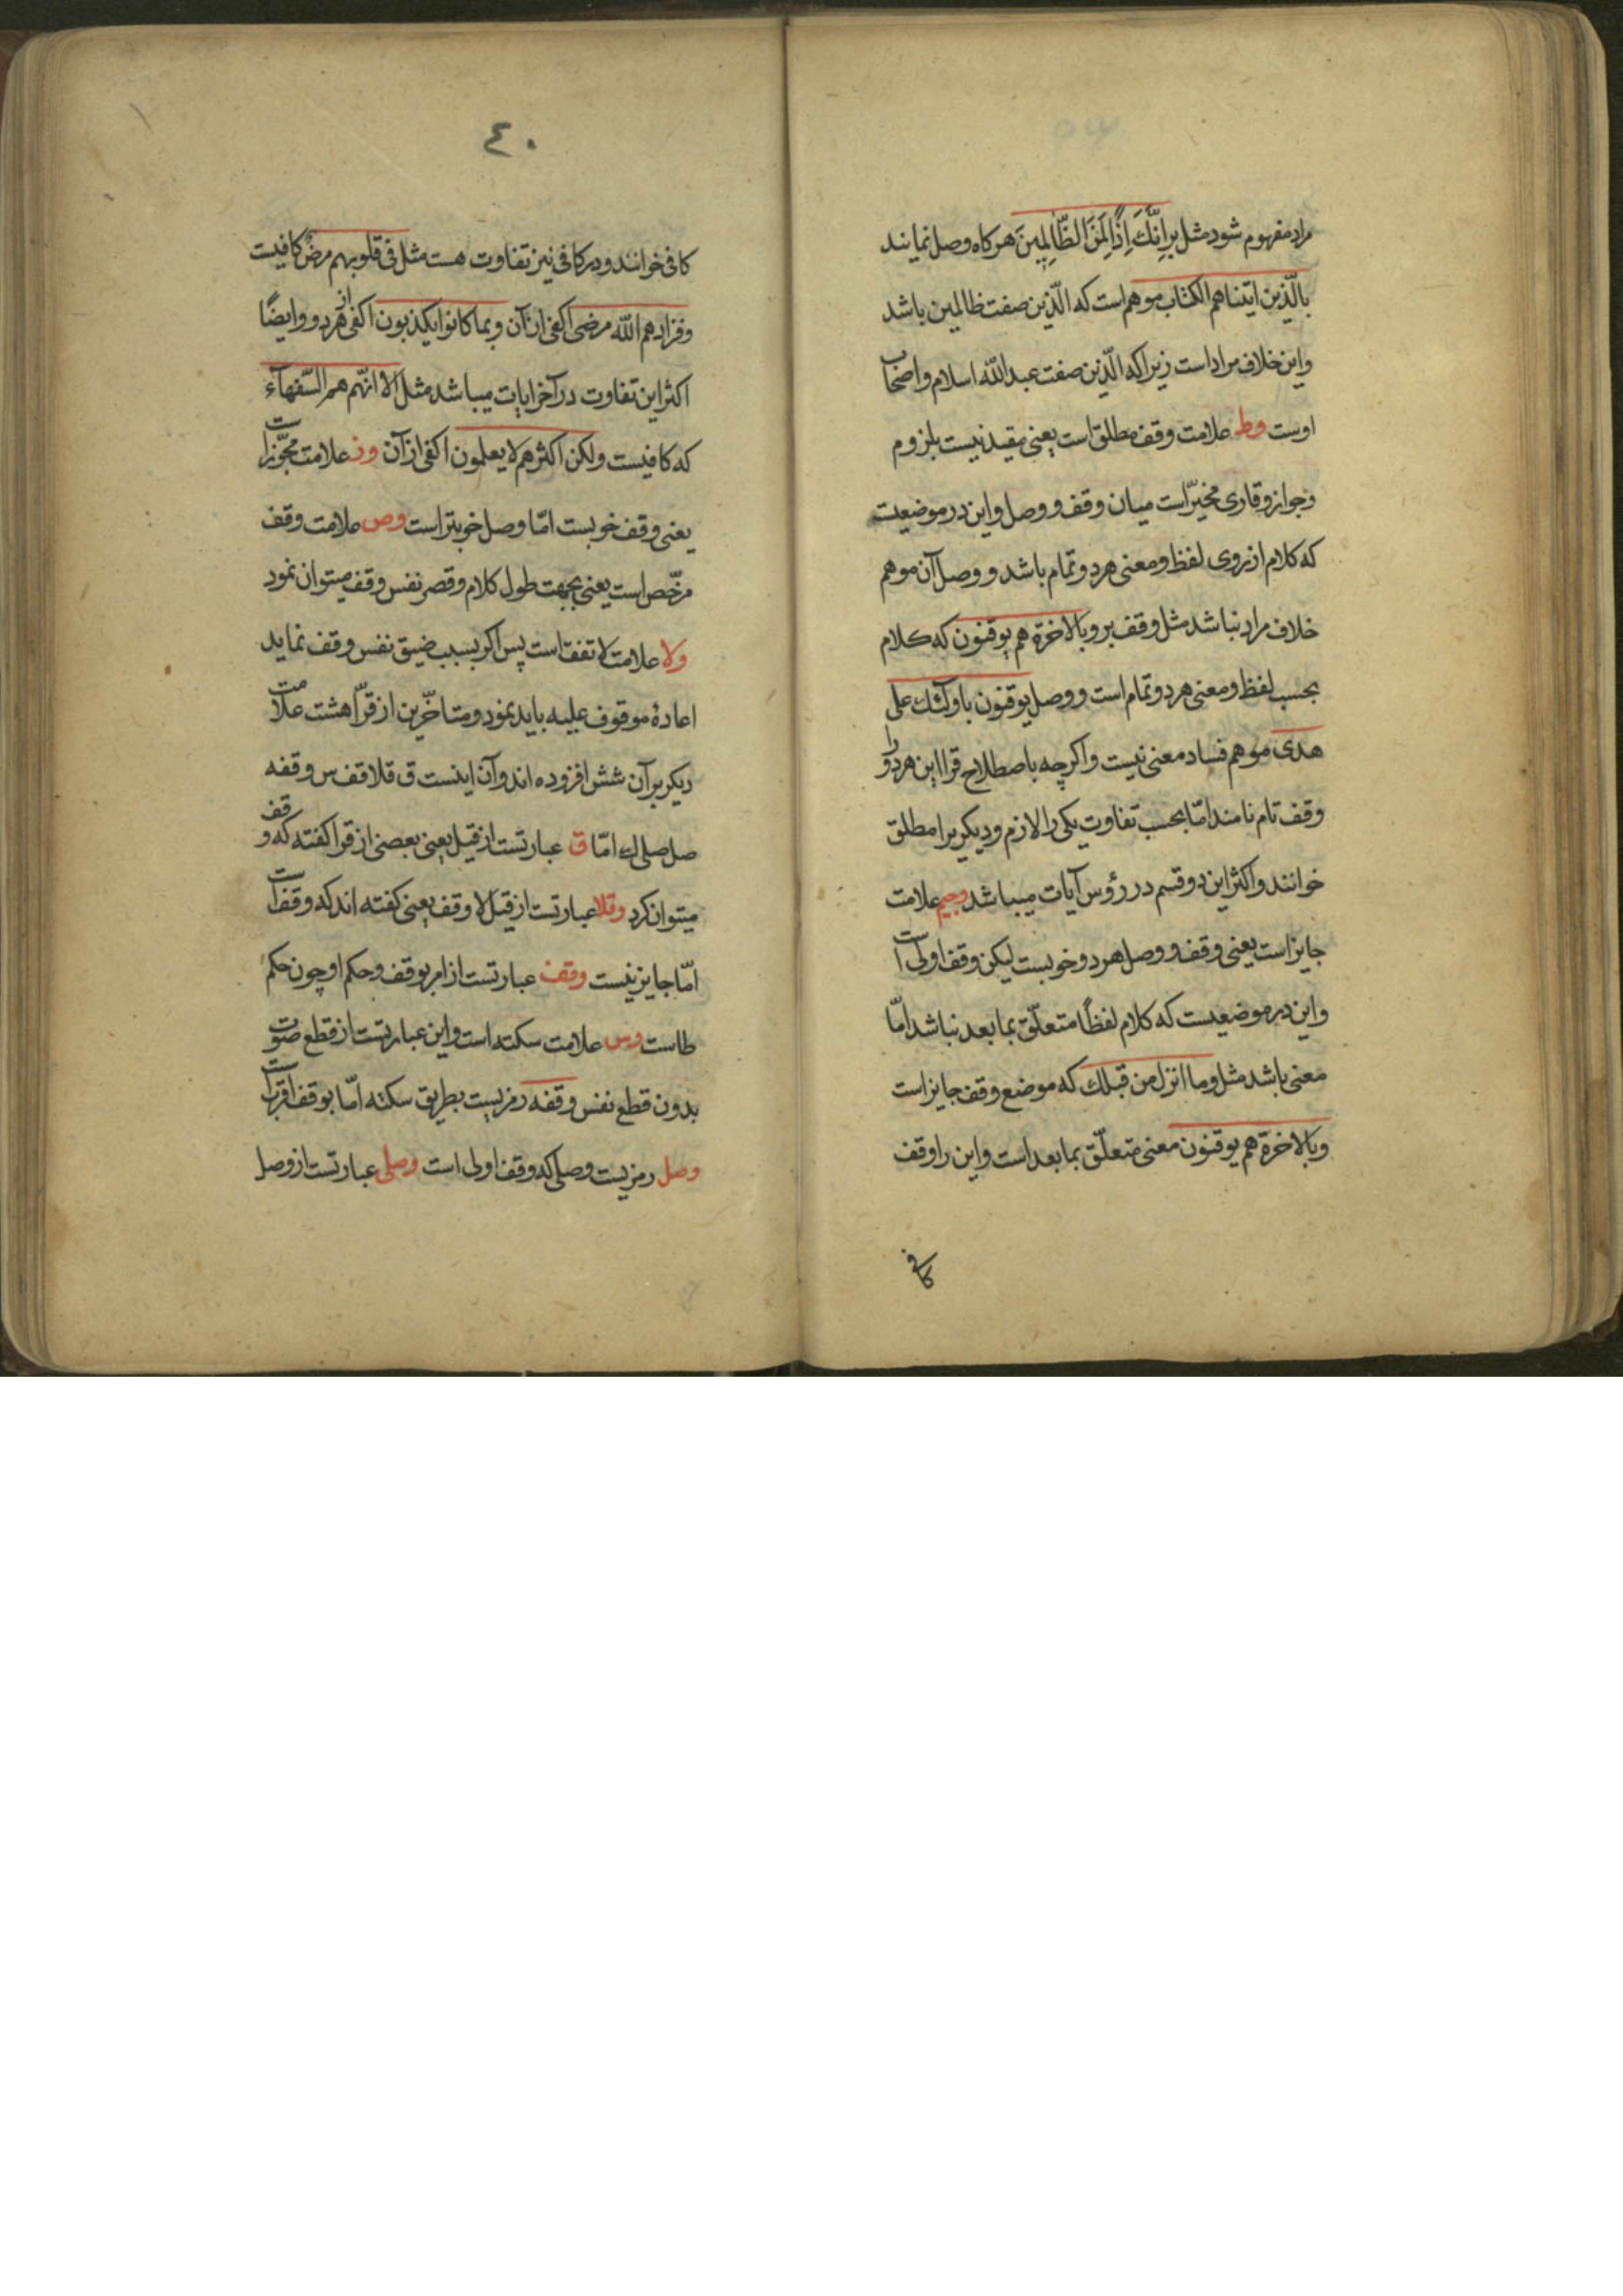 مراد مفهوم شود مثل بر اِنَّكَ اِذًا لَمِنَ الظّٰالِمِينَ هر کاه وصل نمایند
بالّذین اتیناهم الکتاب موهم است که الّذین صفت ظالمین باشد
واین خلاف مراد است زیرا که الّذین صفت عبدالله اسلام واصحاب
اوست وط علامت وقف مطلق است یعنی مقید نیست بلزوم
وجواز وقاری مخیّر است میان وقف ووصل واین در موضعیست
که کلام از روی لفظ ومعنی هردو تمام باشد ووصل آن موهم
خلاف مراد نباشد مثل وقف بر وبالاخرة هم یوقنون که کلام
بحسب لفظ ومعنی هردو تمام است ووصل یوقنون باولئک علی
هدی موهم فساد معنی نیست واکرچه باصطلاح قرا این هردو را
وقف تام نامند امّا بحسب تفاوت یکی را لازم ودیکریرا مطلق
خوانند واکثر این دو قسم در رؤس آیات میباشد وجیم علامت
جایز است یعنی وقف ووصل هردو خوبست لیکن وقف اولی است
واین در موضعیست که کلام لفظًا متعلّق بمابعد نباشد امّا
معنی باشد مثل وما انزل من قبلك که موضع وقف جایز است
وبالاخرة هم یوقنون معنی متعلّق بمابعد است واین را وقف
کافی
٤٠
کافی خوانند ودر کافی نیز تفاوت هست مثل فی قلوبهم مرض کافیست
وفزادهم الله مرضی اکفی از آن وبما کانوا یکذبون اکفی از هردو وایضًا
اکثر این تفاوت در آخر ایات میباشد مثل الا انّهم هم السّفهآء
که کافیست ولکن اکثرهم لا یعلمون اکفی از آن وز علامت مجوّز است
یعنی وقف خوبست امّا وصل خوبتر است وص علامت وقف
مرخّص است یعنی بجهت طول کلام وقصر نفس وقف میتوان نمود
ولا علامت لا تقف است پس اکر بسبب ضیق نفس وقف نماید
اعادهٔ موقوف علیه باید نمود ومتاخّرین از قرّا هشت علامت
دیکر بر آن شش افزوده اند وآن اینست ق قلا قف س وقفه
صل صلی ك امّا ق عبارتست از قیل یعنی بعضی از قرا کفته که وقف
میتوان کرد وقلا عبارتست از قیل لا وقف یعنی کفته اند که وقف است
امّا جایز نیست وقف عبارتست از امر بوقف وحکم او چون حکم
طاست وس علامت سکته است واین عبارتست از قطع صوت
بدون قطع نفس وقفه رمزیست بطریق سکته امّا بوقف اقرب است
وصل رمزیست وصلی که وقف اولی است وصلی عبارتست از وصل